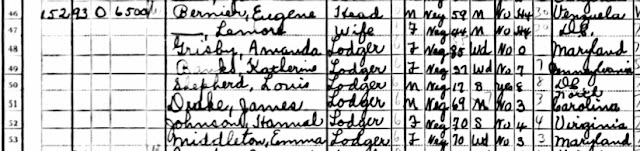 46 152 93 O 6500 Bernier, Eugene Head M Neg 59 M No H4 Venezuela
47 —, Lenore Wife F Neg 44 M No H4 D.C.
48 Grisby, Amanda Lodger F Neg 85 Wd No 0 Maryland
49 Banks, Katherine Lodger F Neg 37 Wd No 7 Pennsylvania
50 Shepherd, Louis Lodger M Neg 17 S Yes 8 D.C.
51 Duke, James Lodger M Neg 69 M No 3 North Carolina
52 Johnson, Hannah Lodger F Neg 70 S No 4 Virginia
53 Middleton, Emma Lodger F Neg 70 Wd No 3 Maryland